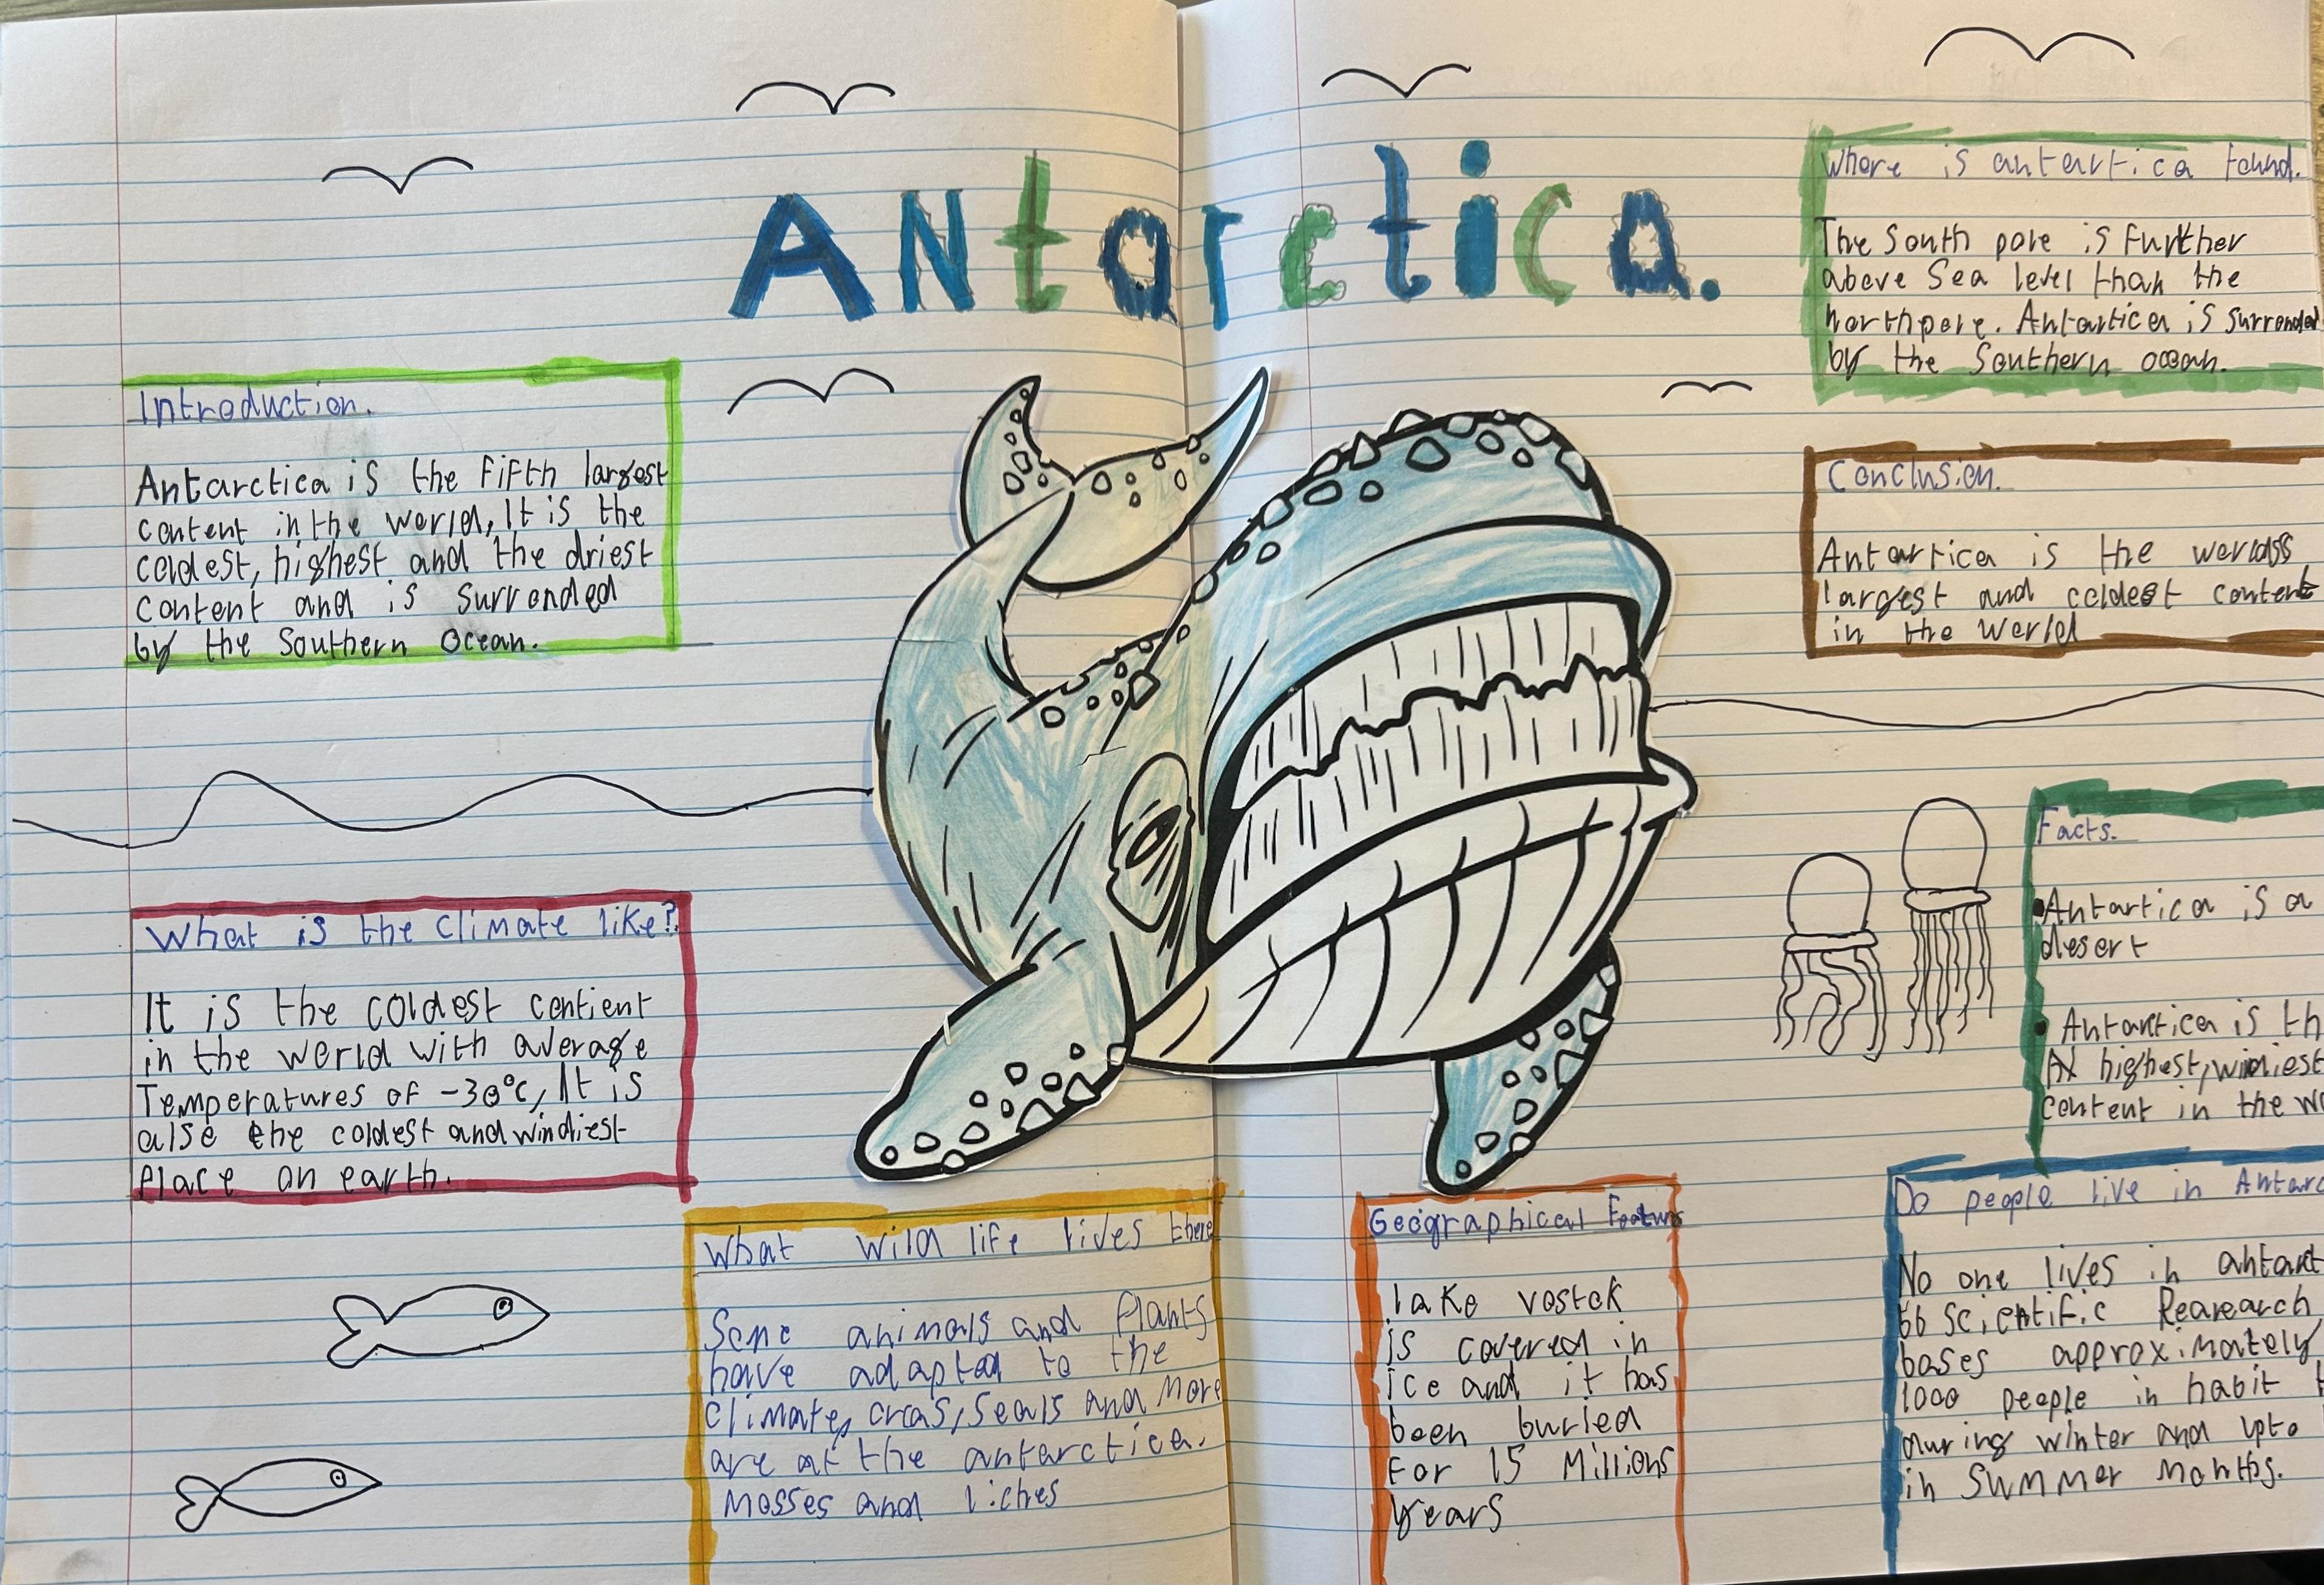 Antarctica.
Introduction.
Antarctica is the fifth largest
content in the world, It is the
coldest, highest and the driest
content and is surronded
by the Southern Ocean.
What is the climate like?
It is the coldest contient
in the world with average
Temperatures of -30°c, It is
also the coldest and windiest
place on earth.
What wild life lives there
Some animals and plants
have adapted to the
climate, orcas, seals and more
are at the antarctica.
Mosses and liches
Geographical Featurs
lake vostok
is covered in
ice and it has
been buried
for 15 Millions
years
Where is antartica found.
The South pole is further
above Sea level than the
northpole. Antartica is surronded
by the Southern ocean.
Conclusion.
Antartica is the worlds
largest and coldest content
in the world
Facts.
•Antartica is a
desert
• Antartica is th
highest, windiest
content in the wo
Do people live in Antarc
No one lives in antart
66 scientific Rearearch
bases approximately
1000 people in habit
during winter and upto
in summer months.